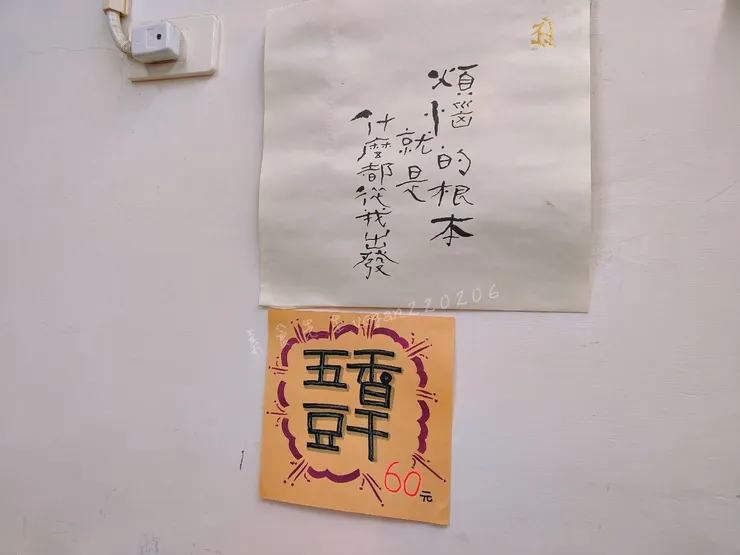 煩惱的根本
就是
什麼都從我出發
五香
豆干
60元
vegan220206